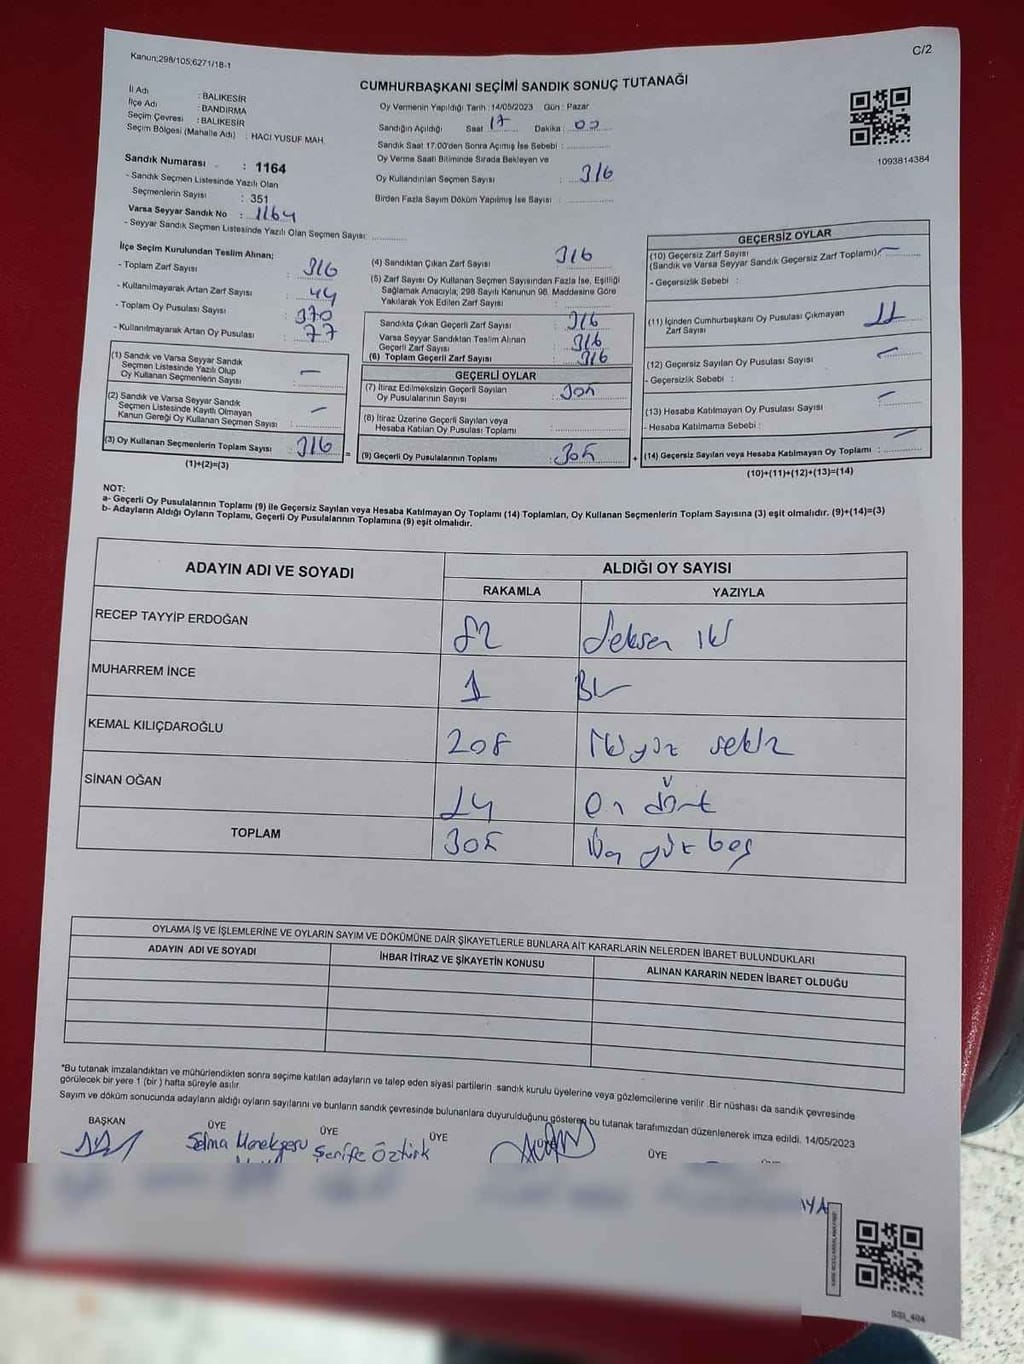 Kanun;298/105;6271/18-1
C/2
CUMHURBAŞKANI SEÇİMİ SANDIK SONUÇ TUTANAĞI
İl Adı : BALIKESİR
İlçe Adı : BANDIRMA
Seçim Çevresi : BALIKESİR
Seçim Bölgesi (Mahalle Adı) : HACI YUSUF MAH.
Oy Vermenin Yapıldığı Tarih :14/05/2023 Gün : Pazar
Sandığın Açıldığı Saat 17 Dakika : 00
Sandık Saat 17.00'den Sonra Açımış İse Sebebi :
Oy Verme Saati Bitiminde Sırada Bekleyen ve
Oy Kullandırılan Seçmen Sayısı : 316
Birden Fazla Sayım Döküm Yapılmış İse Sayısı :
1093814384
Sandık Numarası : 1164
- Sandık Seçmen Listesinde Yazılı Olan
Seçmenlerin Sayısı : 351
Varsa Seyyar Sandık No : 1164
- Seyyar Sandık Seçmen Listesinde Yazılı Olan Seçmen Sayısı:
İlçe Seçim Kurulundan Teslim Alınan;
- Toplam Zarf Sayısı : 316
- Kullanılmayarak Artan Zarf Sayısı : 44
- Toplam Oy Pusulası Sayısı : 370
- Kullanılmayarak Artan Oy Pusulası : 77
(1) Sandık ve Varsa Seyyar Sandık
Seçmen Listesinde Yazılı Olup
Oy Kullanan Seçmenlerin Sayısı : —
(2) Sandık ve Varsa Seyyar Sandık
Seçmen Listesinde Kayıtlı Olmayan
Kanun Gereği Oy Kullanan Seçmen Sayısı : —
(3) Oy Kullanan Seçmenlerin Toplam Sayısı : 316 =
(1)+(2)=(3)
(4) Sandıktan Çıkan Zarf Sayısı : 316
(5) Zarf Sayısı Oy Kullanan Seçmen Sayısından Fazla İse, Eşitliği
Sağlamak Amacıyla; 298 Sayılı Kanunun 98. Maddesine Göre
Yakılarak Yok Edilen Zarf Sayısı :
Sandıkta Çıkan Geçerli Zarf Sayısı : 316
Varsa Seyyar Sandıktan Teslim Alınan
Geçerli Zarf Sayısı : 316
(6) Toplam Geçerli Zarf Sayısı : 316
GEÇERLİ OYLAR
(7) İtiraz Edilmeksizin Geçerli Sayılan
Oy Pusulalarının Sayısı : 305
(8) İtiraz Üzerine Geçerli Sayılan veya
Hesaba Katılan Oy Pusulası Toplamı :
(9) Geçerli Oy Pusulalarının Toplamı : 305 +
GEÇERSİZ OYLAR
(10) Geçersiz Zarf Sayısı
(Sandık ve Varsa Seyyar Sandık Geçersiz Zarf Toplamı): —
- Geçersizlik Sebebi :
(11) İçinden Cumhurbaşkanı Oy Pusulası Çıkmayan
Zarf Sayısı : 11
(12) Geçersiz Sayılan Oy Pusulası Sayısı : —
- Geçersizlik Sebebi :
(13) Hesaba Katılmayan Oy Pusulası Sayısı : —
- Hesaba Katılmama Sebebi :
(14) Geçersiz Sayılan veya Hesaba Katılmayan Oy Toplamı : —
(10)+(11)+(12)+(13)=(14)
NOT:
a- Geçerli Oy Pusulalarının Toplamı (9) ile Geçersiz Sayılan veya Hesaba Katılmayan Oy Toplamı (14) Toplamları, Oy Kullanan Seçmenlerin Toplam Sayısına (3) eşit olmalıdır. (9)+(14)=(3)
b- Adayların Aldığı Oyların Toplamı, Geçerli Oy Pusulalarının Toplamına (9) eşit olmalıdır.
ADAYIN ADI VE SOYADI
ALDIĞI OY SAYISI
RAKAMLA YAZIYLA
RECEP TAYYİP ERDOĞAN 82 Seksen iki
MUHARREM İNCE 1 Bir
KEMAL KILIÇDAROĞLU 208 İki yüz sekiz
SİNAN OĞAN 14 On dört
TOPLAM 305 Üç yüz beş
OYLAMA İŞ VE İŞLEMLERİNE VE OYLARIN SAYIM VE DÖKÜMÜNE DAİR ŞİKAYETLERLE BUNLARA AİT KARARLARIN NELERDEN İBARET BULUNDUKLARI
ADAYIN ADI VE SOYADI
İHBAR İTİRAZ VE ŞİKAYETİN KONUSU
ALINAN KARARIN NEDEN İBARET OLDUĞU
*Bu tutanak imzalandıktan ve mühürlendikten sonra seçime katılan adayların ve talep eden siyasi partilerin sandık kurulu üyelerine veya gözlemcilerine verilir .Bir nüshası da sandık çevresinde
görülecek bir yere 1 (bir ) hafta süreyle asılır.
Sayım ve döküm sonucunda adayların aldığı oyların sayılarını ve bunların sandık çevresinde bulunanlara duyurulduğunu gösteren bu tutanak tarafımızdan düzenlenerek imza edildi. 14/05/2023
BAŞKAN ÜYE ÜYE ÜYE ÜYE ÜYE
Selma Şerife Öztürk
SSI_404